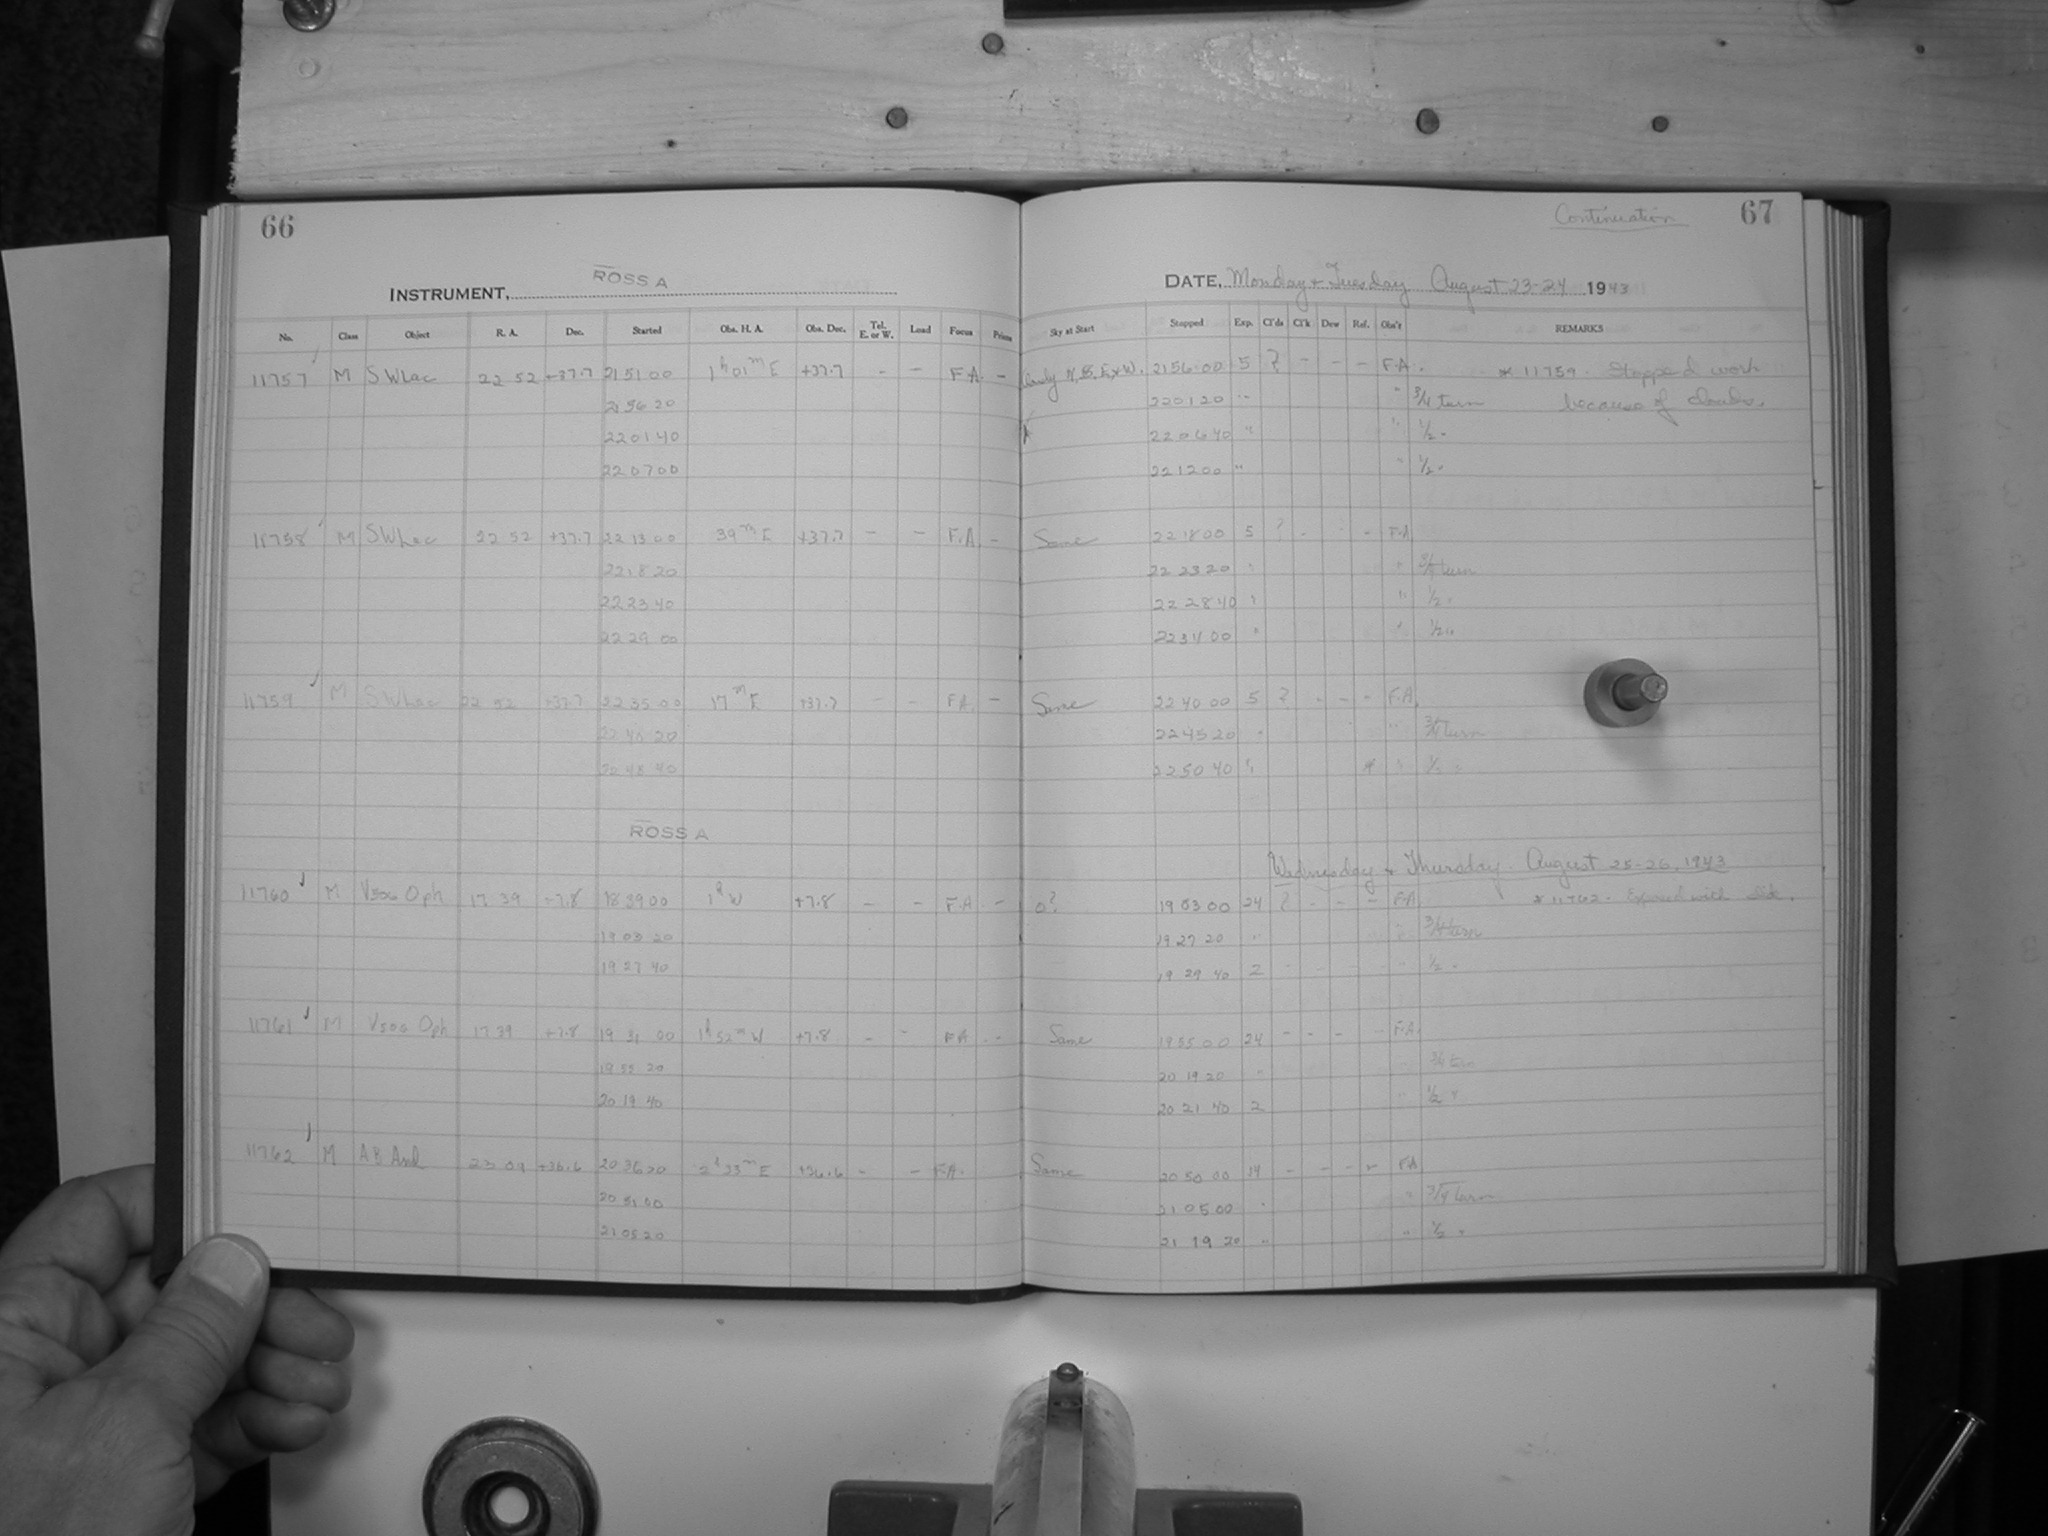 66
Continuation 67
INSTRUMENT, ROSS A
DATE, Monday + Tuesday August 23-24 1943
No. Class Object R. A. Dec. Started Obs. H. A. Obs. Dec. Tel. E. or W. Load Focus Prism Sky at Start Stopped Exp. Cl'ds Cl'k Dew Ref. Obs'r REMARKS
11757 M SWLac 22 52 +37.7 21 51 00 1h 01m E +37.7 - - F.A. - N, S, E, & W. 21 56 00 5 ? - - - F.A. * 11759. Stopped work
21 56 20 22 01 20 " " 3/4 turn because of clouds.
22 01 40 22 06 40 " " 1/2 "
22 07 00 22 12 00 " " 1/2 "
11758 M SWLac 22 52 +37.7 22 13 00 39m E +37.7 - - F.A. - Same 22 18 00 5 ? - - F.A
22 18 20 22 23 20 " " 3/4 turn
22 23 40 22 28 40 " " 1/2 "
22 29 00 22 34 00 " " 1/2 "
11759 M SWLac 22 52 +37.7 22 35 00 17m E +37.7 - - F.A. - Same 22 40 00 5 ? - - - F.A.
22 40 20 22 45 20 " " 3/4 turn
22 50 40 " * " 1/2 "
ROSS A
Wednesday + Thursday. August 25-26, 1943
11760 M V506 Oph 17 39 +7.8 18 39 00 1h W +7.8 - - F.A - 0? 19 03 00 24 ? - - - F.A * 11762.
19 03 20 19 27 20 " " 3/4 turn
19 27 40 19 29 40 2 - - - " 1/2 "
11761 M V506 Oph 17 39 +7.8 19 31 00 1h 52m W +7.8 - - F.A - Same 19 55 00 24 - - - - F.A.
19 55 20 20 19 20 " " 3/4 turn
20 19 40 20 21 40 2 " 1/2 "
11762 M AB And 23 09 +36.6 2h 33m E +36.6 - - F.A. Same 20 50 00 14 - - - - FA
20 51 00 21 05 00 " " 3/4 turn
21 05 20 21 19 20 " " 1/2 "